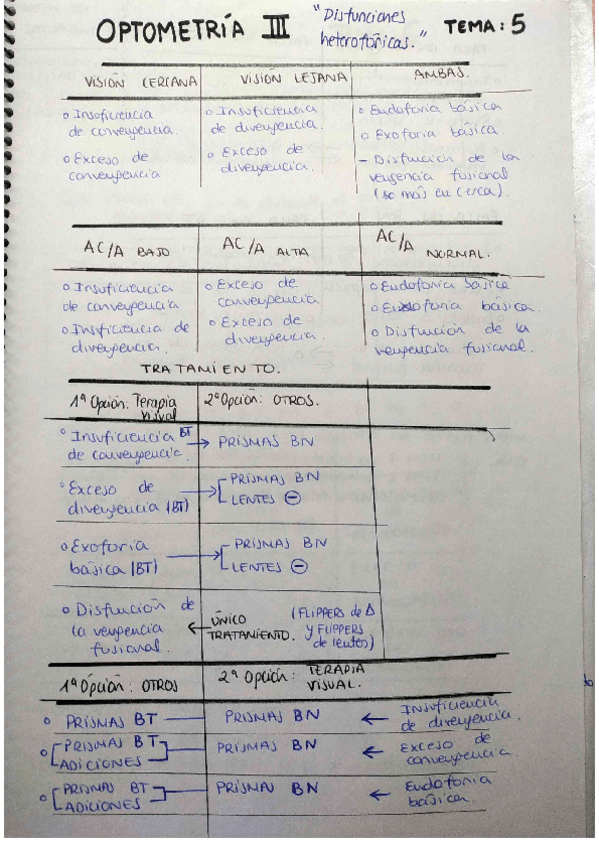 OPTOMETRÍA III "Disfunciones heterofóricas." TEMA: 5
VISIÓN CERCANA VISIÓN LEJANA AMBAS.
o Insuficiencia de convergencia. o Insuficiencia de divergencia. o Endoforia básica
o Exceso de convergencia o Exceso de divergencia. o Exoforia básica.
- Disfunción de la vergencia fusional (so más en cerca).
AC/A BAJO AC/A ALTA AC/A NORMAL.
o Insuficiencia de convergencia o Exceso de convergencia o Endoforia básica
o Insuficiencia de divergencia. o Exceso de divergencia. o Exoforia básica.
o Disfunción de la vergencia fusional.
TRATAMIENTO.
1ª Opción: Terapia Visual 2ª Opción: OTROS.
o Insuficiencia BT de convergencia. → PRISMAS BN
o Exceso de divergencia (BT) → PRISMAS BN
LENTES ⊖
o Exoforia básica (BT) → PRISMAS BN
LENTES ⊖
o Disfunción de la vergencia fusional. ← ÚNICO TRATAMIENTO. (FLIPPERS de Δ y FLIPPERS de lentes)
1ª Opción: OTROS 2ª Opción: TERAPIA VISUAL.
o PRISMAS BT — PRISMAS BN ← Insuficiencia de divergencia.
o [PRISMAS BT ADICIONES] — PRISMAS BN ← Exceso de convergencia.
o [PRISMAS BT ADICIONES] — PRISMAS BN ← Endoforia básica.